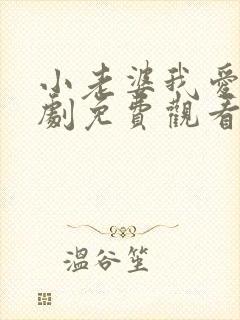 小老婆我愛
劇免費觀看
溫谷笙